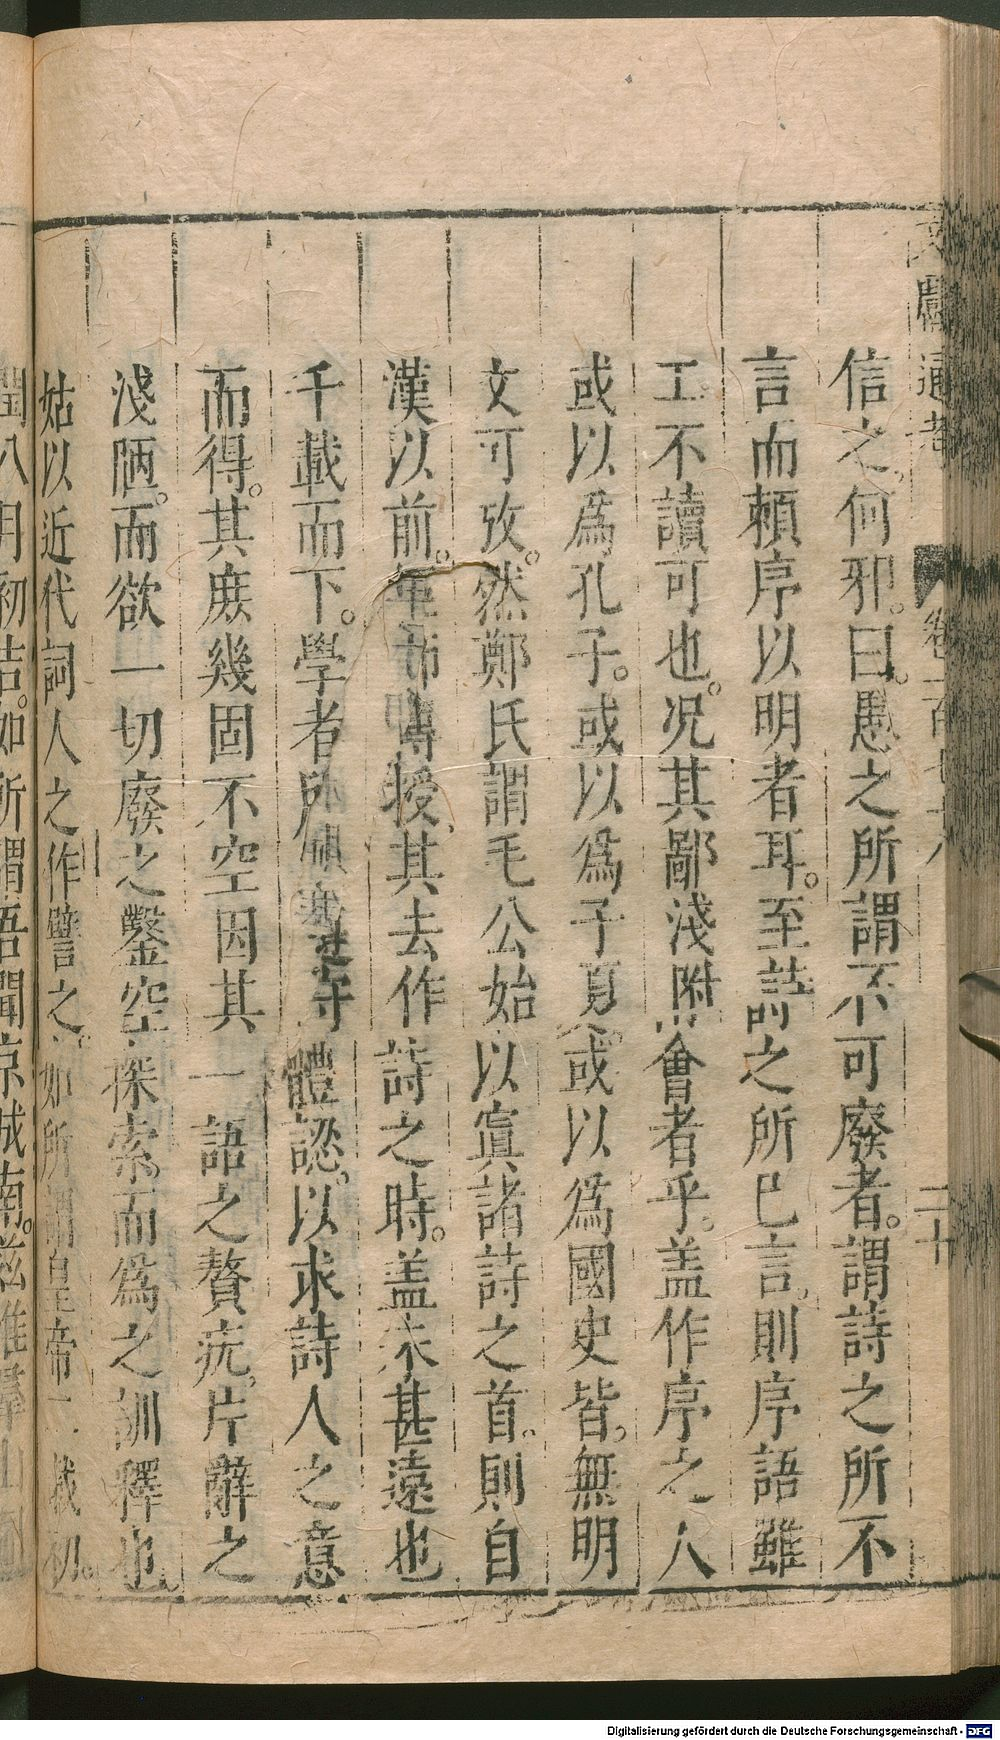 信之何邪。曰。愚之所謂不可廢者。謂詩之所不
言而賴序以明者耳。至詩之所已言。則序語雖
工不讀可也。况其鄙淺附會者乎。盖作序之人
或以爲孔子。或以爲子夏。或以爲國史皆。無明
文可攷。然鄭氏謂毛公始以寘諸詩之首。則自
漢以前。傳授其去作詩之時。盖未甚遠也
千載而下。學者所體認。以求詩人之意
而得。其庶幾固不空因其一語之贅疣。片辭之
淺陋。而欲一切廢之鑿空探索。而爲之訓釋也
姑以近代詞人之作譬之。如所謂皇帝二載初。
閏八月初吉。如所謂吾聞京城南。兹惟羣山
文獻通考
卷一百七十八
二十
Digitalisierung gefördert durch die Deutsche Forschungsgemeinschaft - DFG